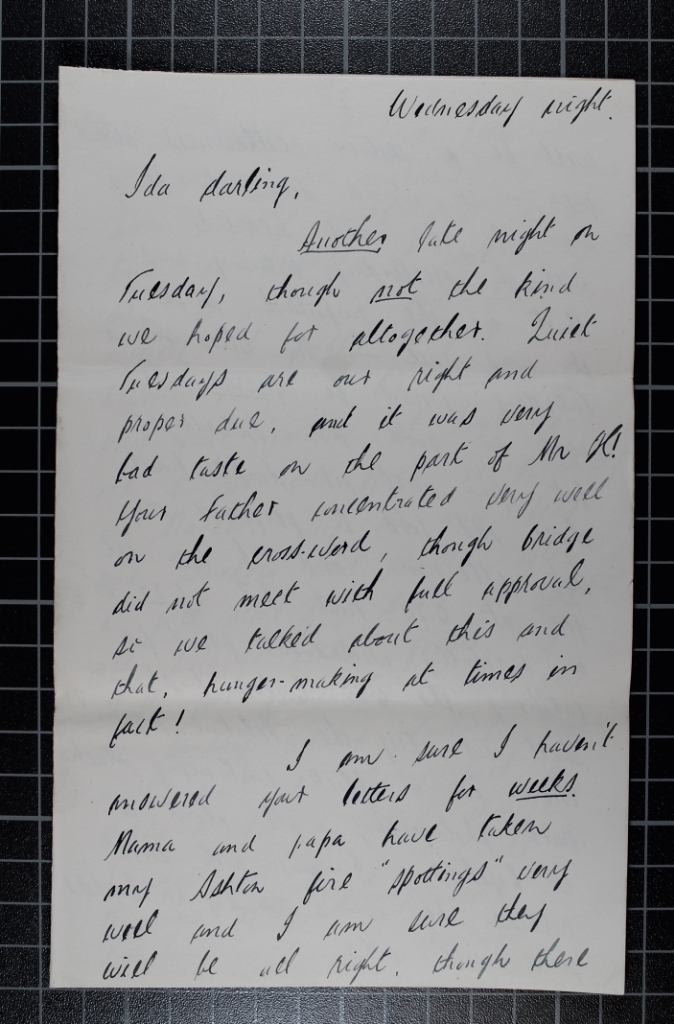 Wednesday night.
Ida darling,
Another late night on
Tuesday, though not the kind
we hoped for altogether. Quiet
Tuesdays are our right and
proper due, and it was very
bad taste on the part of Mr H!
Your Father concentrated very well
on the cross-word, though bridge
did not meet with full approval,
so we talked about this and
that, hunger-making at times in
fact!
I am sure I haven't
answered your letters for weeks.
Mama and papa have taken
my Ashton fire "spottings" very
well and I am sure they
will be all right, though there